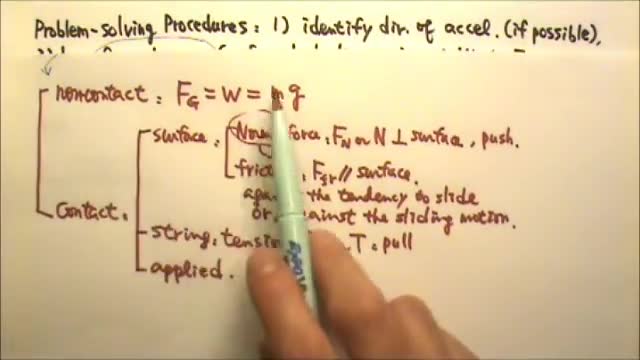 Problem-solving Procedures: 1) identify dir. of accel. (if possible),
noncontact: FG = W = mg
surface: Normal force: FN or N ⊥ surface, push.
friction, Ffr // surface.
against the tendency to slide
or against the sliding motion.
Contact:
string: tension T: pull
applied.